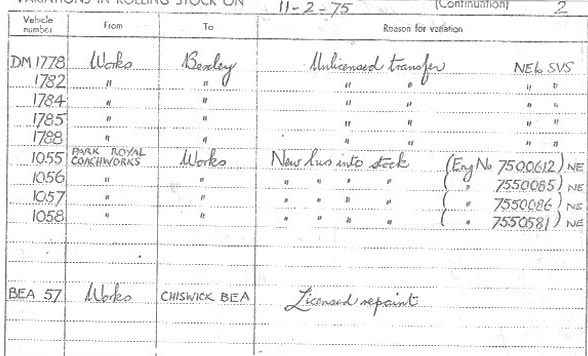 VARIATIONS IN ROLLING STOCK ON 11-2-75 (Continuation) 2
Vehicle number From To Reason for variation
DM 1778 Works Bexley Unlicensed transfer NEL SVS
1782 " " " " " "
1784 " " " " " "
1785 " " " " " "
1788 " " " " " "
1055 PARK ROYAL COACHWORKS Works New bus into stock (Eng No 7500612) NE
1056 " " " " " " ( " 7550085) NE
1057 " " " " " " ( " 7550086) NE
1058 " " " " " " ( " 7550581) NE
BEA 57 Works CHISWICK BEA Licensed repaint